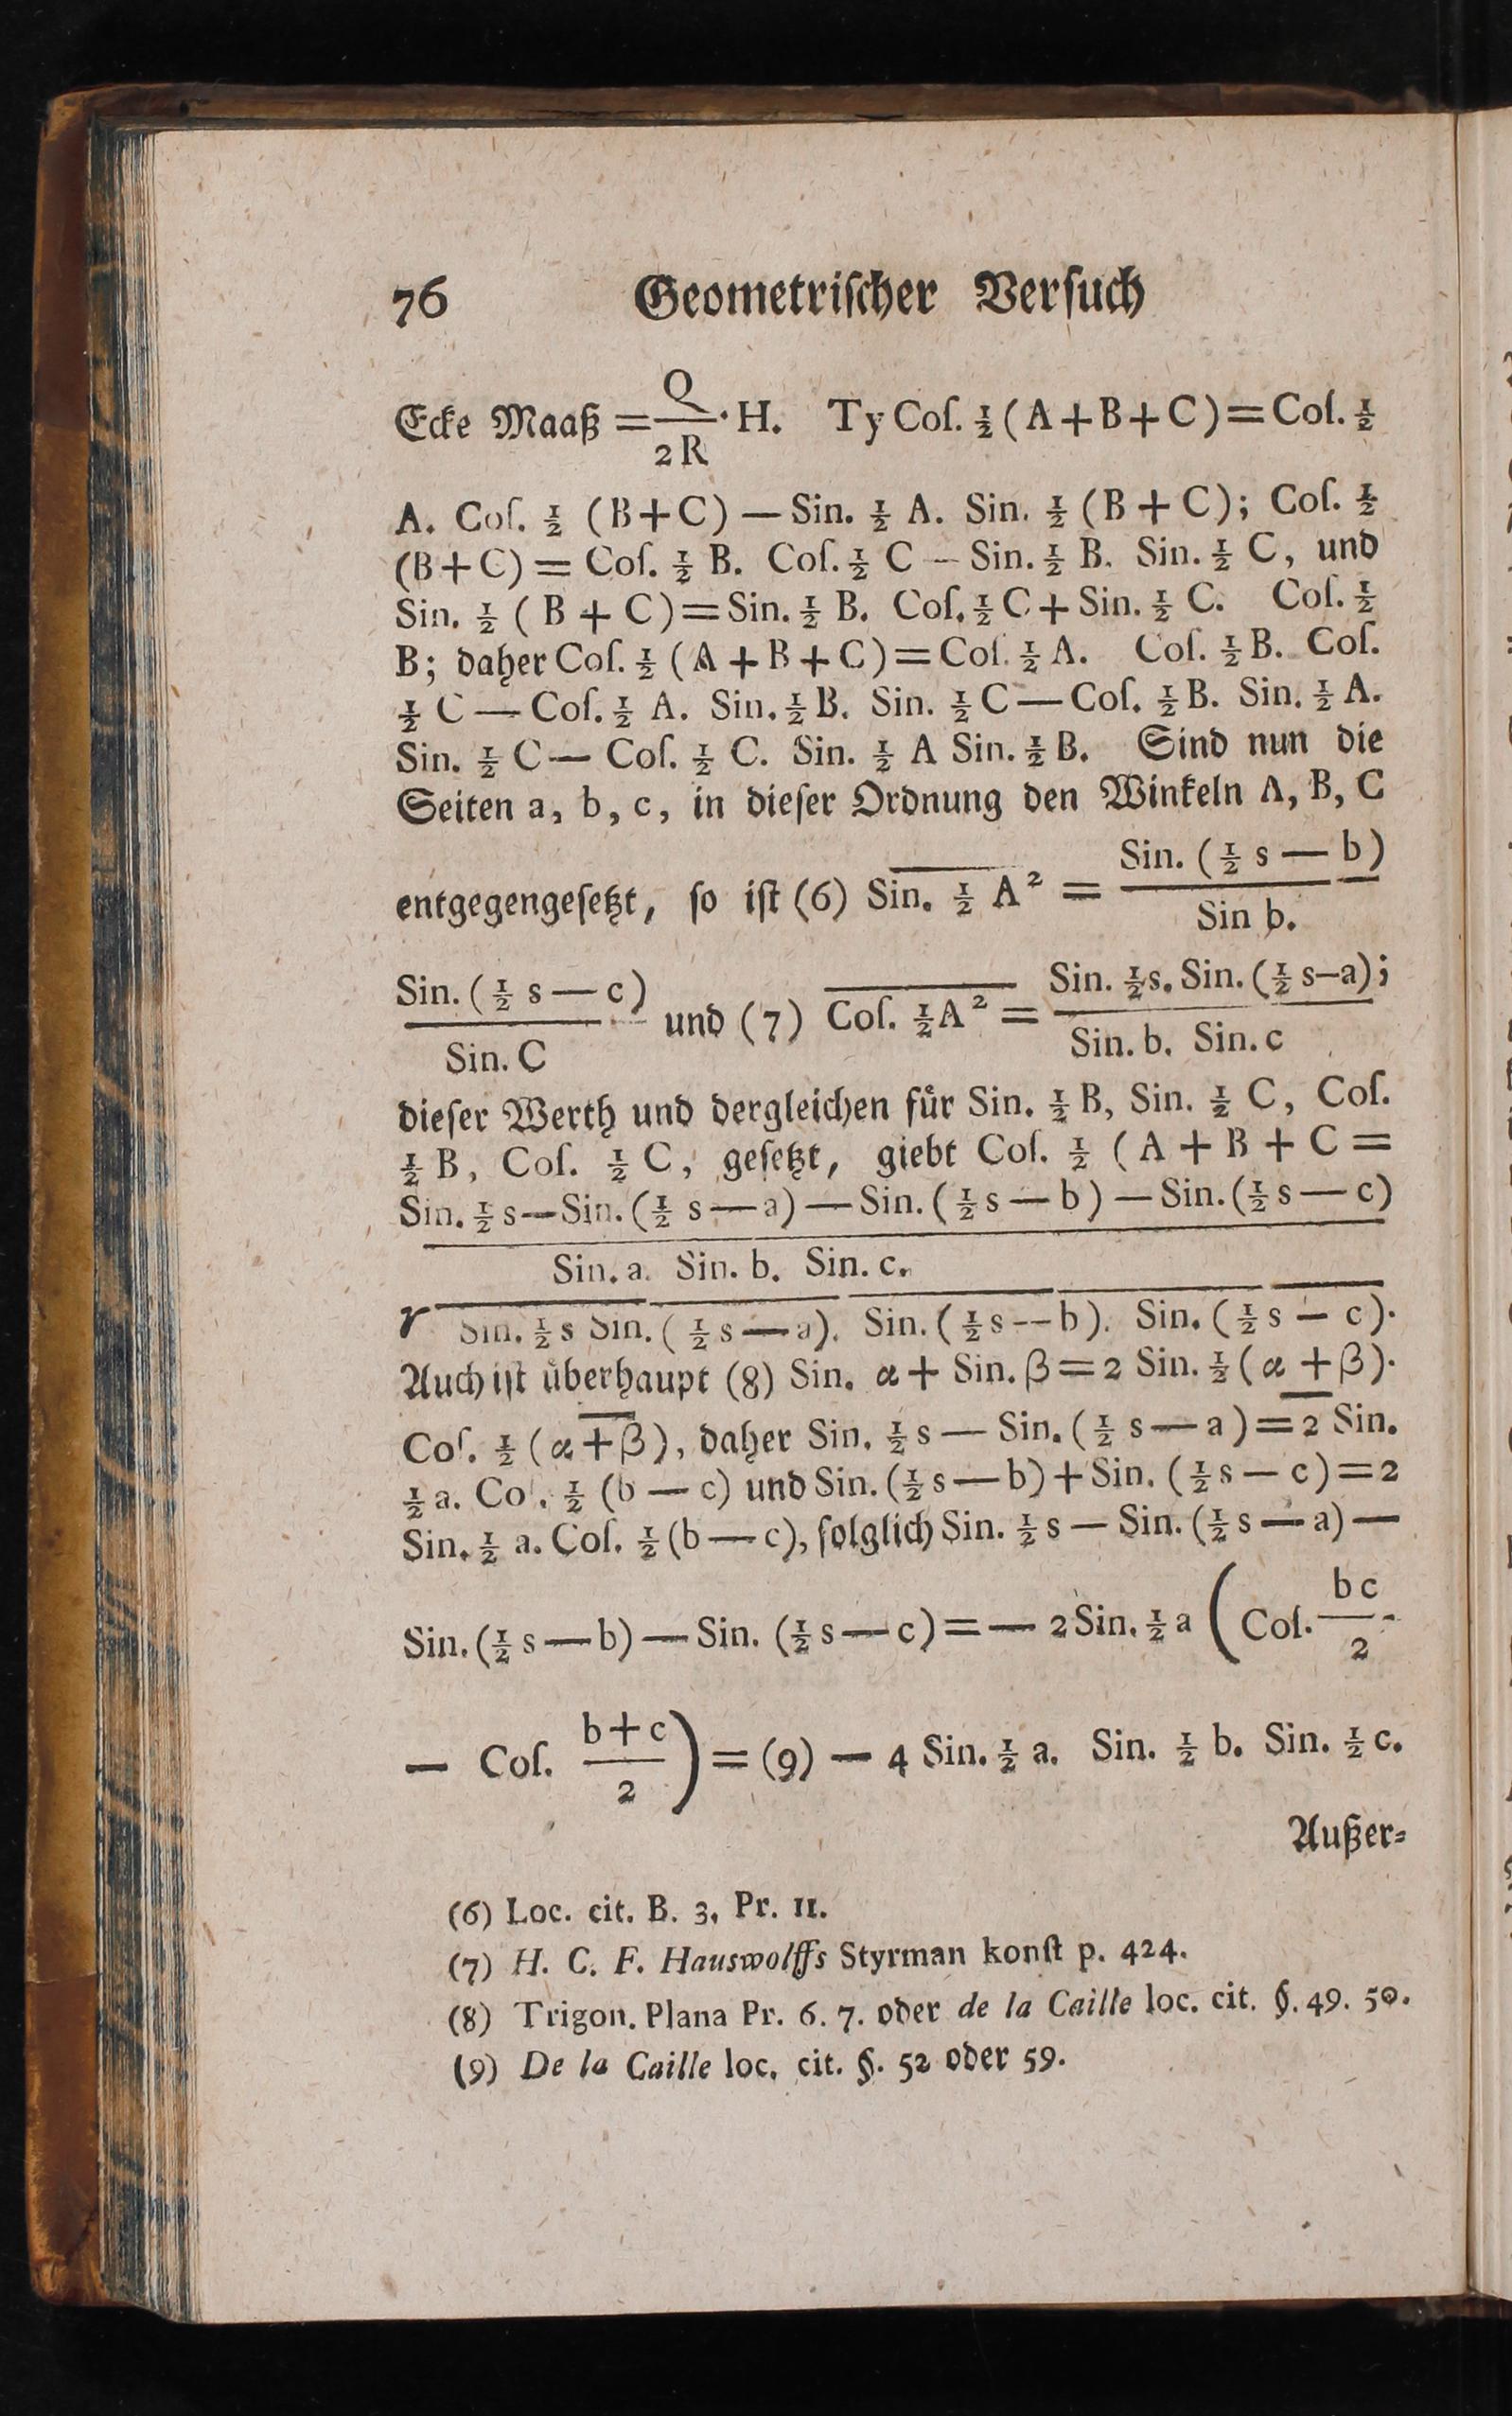 76 Geometriſcher Verſuch
Ecke Maaß = Q/2R · H. Ty Coſ. ½ (A+B+C)=Coſ. ½
A. Coſ. ½ (B+C) — Sin. ½ A. Sin. ½ (B + C); Coſ. ½
(B+C) = Coſ. ½ B. Coſ. ½ C – Sin. ½ B. Sin. ½ C, und
Sin. ½ ( B + C)=Sin. ½ B. Coſ. ½ C + Sin. ½ C. Coſ. ½
B; daher Coſ. ½ (A + B + C)=Coſ. ½ A. Coſ. ½ B. Coſ.
½ C — Coſ. ½ A. Sin. ½ B. Sin. ½ C — Coſ. ½ B. Sin. ½ A.
Sin. ½ C — Coſ. ½ C. Sin. ½ A Sin. ½ B. Sind nun die
Seiten a, b, c, in dieſer Ordnung den Winkeln A, B, C
entgegengeſetzt, ſo iſt (6) Sin. ½ A² = Sin. (½ s — b) / Sin b.
Sin. (½ s — c) / Sin. C und (7) Coſ. ½ A² = Sin. ½ s. Sin. (½ s–a); / Sin. b. Sin. c
dieſer Werth und dergleichen für Sin. ½ B, Sin. ½ C, Coſ.
½ B, Coſ. ½ C, geſetzt, giebt Coſ. ½ (A + B + C =
Sin. ½ s — Sin. (½ s — a) — Sin. (½ s — b) — Sin. (½ s — c)
Sin. a. Sin. b. Sin. c.
r Sin. ½ s Sin. (½ s — a). Sin. (½ s -- b). Sin. (½ s – c).
Auch iſt überhaupt (8) Sin. α + Sin. β = 2 Sin. ½ (α + β).
Coſ. ½ (α + β), daher Sin. ½ s — Sin. (½ s — a) = 2 Sin.
½ a. Coſ. ½ (b — c) und Sin. (½ s — b) + Sin. (½ s — c) = 2
Sin. ½ a. Coſ. ½ (b — c), folglich Sin. ½ s — Sin. (½ s — a) —
Sin. (½ s — b) — Sin. (½ s — c) = — 2 Sin. ½ a ( Coſ. bc/2 -
— Coſ. b+c/2 ) = (9) — 4 Sin. ½ a. Sin. ½ b. Sin. ½ c.
Außer-
(6) Loc. cit. B. 3, Pr. 11.
(7) H. C. F. Hauswolffs Styrman konſt p. 424.
(8) Trigon. Plana Pr. 6. 7. oder de la Caille loc. cit. §. 49. 50.
(9) De la Caille loc. cit. §. 52 oder 59.